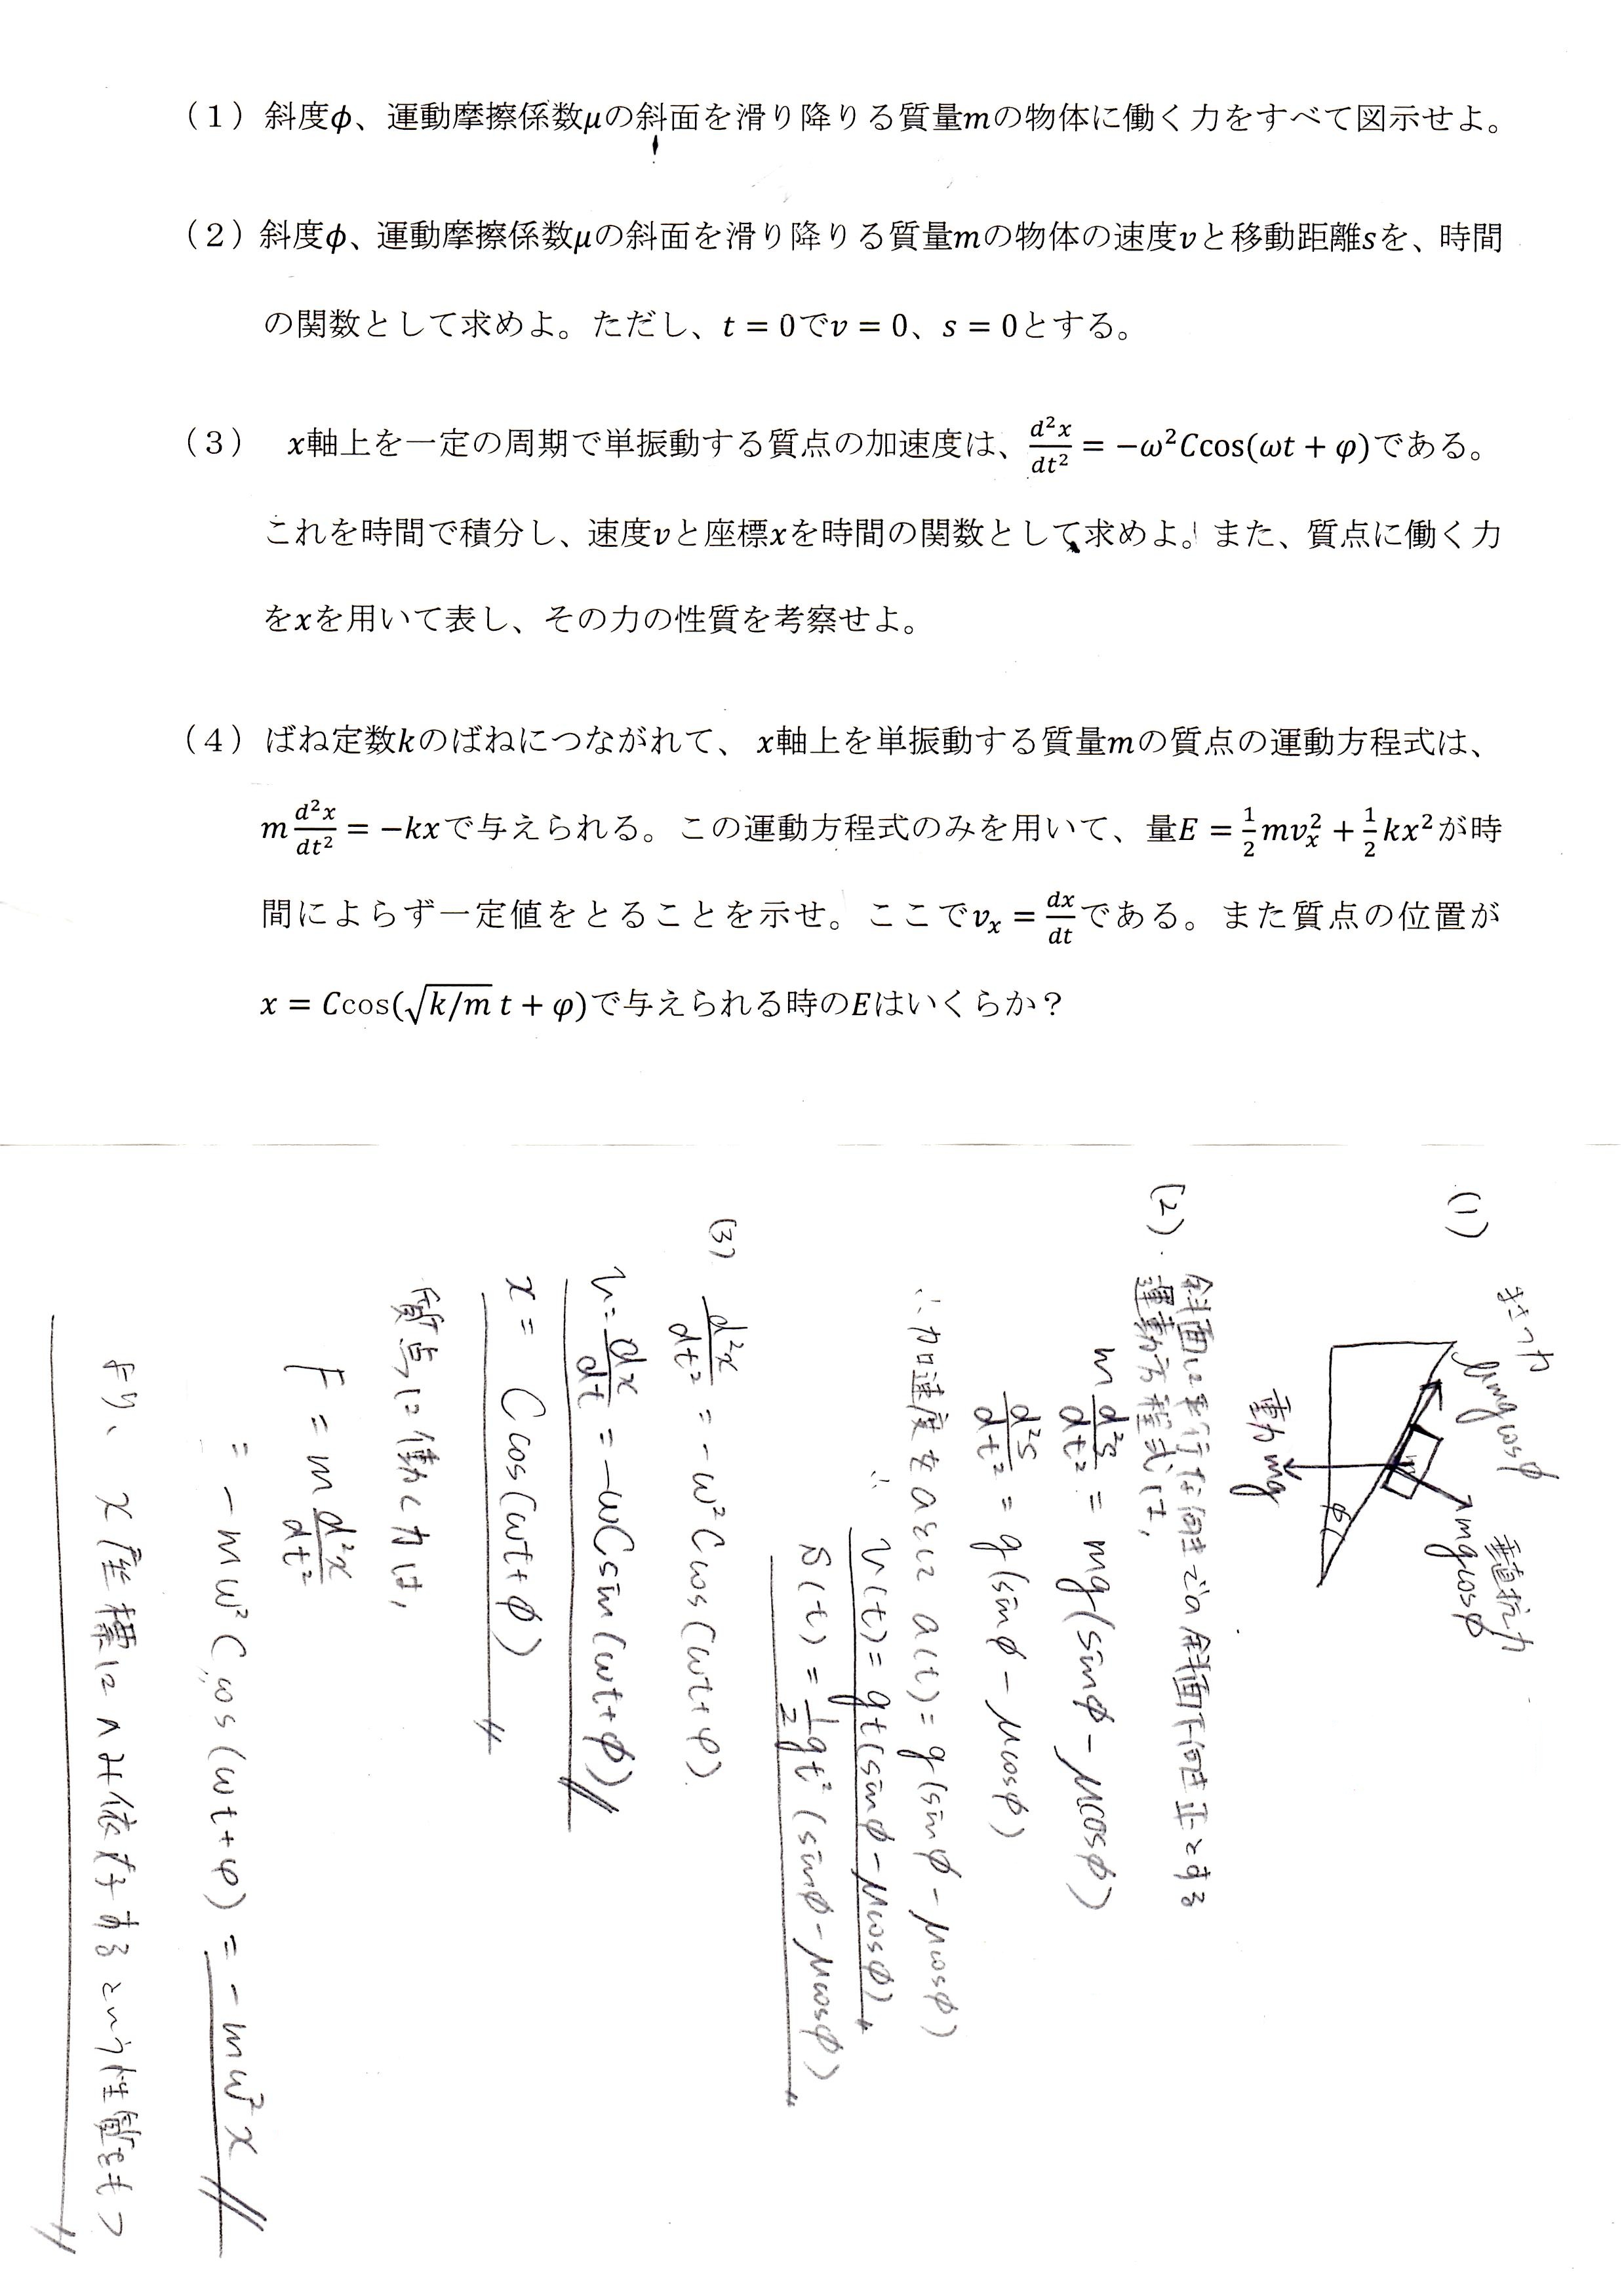 (1)斜度ϕ、運動摩擦係数μの斜面を滑り降りる質量mの物体に働く力をすべて図示せよ。
(2)斜度ϕ、運動摩擦係数μの斜面を滑り降りる質量mの物体の速度vと移動距離sを、時間
の関数として求めよ。ただし、t = 0でv = 0、s = 0とする。
(3) x軸上を一定の周期で単振動する質点の加速度は、d²x/dt² = −ω²Ccos(ωt + φ)である。
これを時間で積分し、速度vと座標xを時間の関数として求めよ。また、質点に働く力
をxを用いて表し、その力の性質を考察せよ。
(4)ばね定数kのばねにつながれて、x軸上を単振動する質量mの質点の運動方程式は、
m d²x/dt² = −kxで与えられる。この運動方程式のみを用いて、量E = 1/2 mvₓ² + 1/2 kx²が時
間によらず一定値をとることを示せ。ここでvₓ = dx/dtである。また質点の位置が
x = Ccos(√(k/m) t + φ)で与えられる時のEはいくらか?
(1)
μmgcosϕ
垂直抗力
mgcosϕ
m
ϕ
重力 mg
(2)
斜面に平行な向きでの斜面下向き正とする
運動方程式は、
m d²s/dt² = mg(sinϕ − μcosϕ)
d²s/dt² = g(sinϕ − μcosϕ)
∴ 加速度をaとして a(t) = g(sinϕ − μcosϕ)
∴ v(t) = gt(sinϕ − μcosϕ)
s(t) = 1/2 gt²(sinϕ − μcosϕ)
(3) d²x/dt² = −ω²Ccos(ωt + φ)
v = dx/dt = −ωCsin(ωt + ϕ)
x = Ccos(ωt + ϕ)
質点に働く力は、
F = m d²x/dt²
= −mω²Ccos(ωt + φ) = −mω²x
より、x座標にのみ依存するという性質をもつ